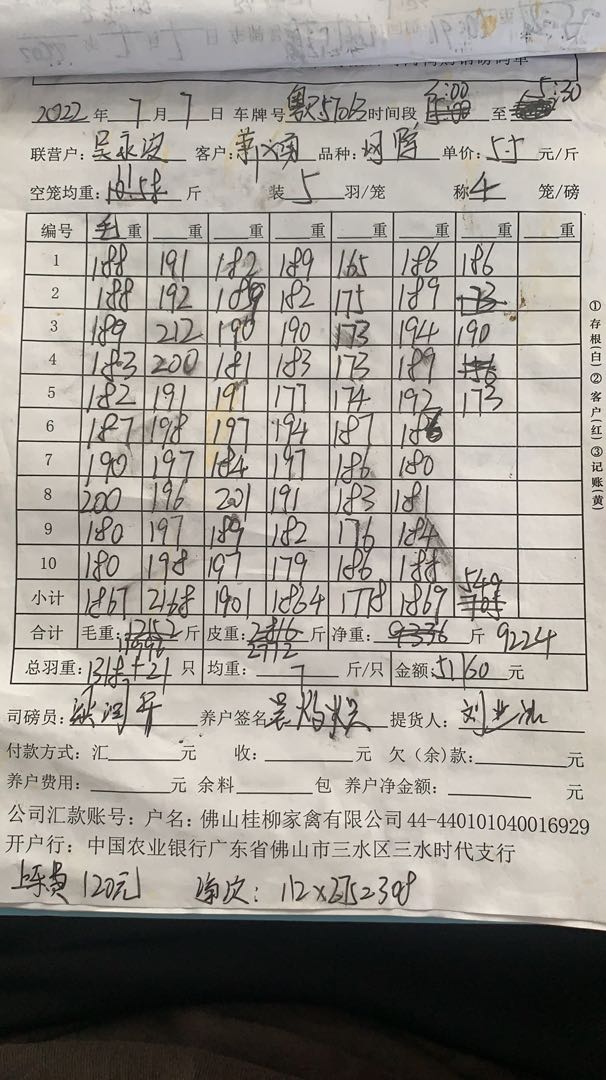 2022 年 7 月 7 日 车牌号 粤 时间段 5:00 至 5:30
联营户: 吴永波 客户: 品种: 单价: 5.5 元/斤
空笼均重: 斤 装 5 羽/笼 称 4 笼/磅
编号 毛重 重 重 重 重 重 重 重
1 188 191 182 189 165 186 186
2 188 192 189 182 175 189 173
3 189 212 190 190 173 194 190
4 183 200 181 183 173 189
5 182 191 191 177 174 192 173
6 187 198 197 194 187 186
7 190 197 184 197 186 180
8 200 196 201 191 183 181
9 180 197 189 182 176 184
10 180 198 197 179 186 188
549
小计 1867 2168 1901 1864 1778 1869
合计 毛重: 12152 斤 皮重: 2816 斤 净重: 9336 斤 9224
11996 2772
总羽重: 只 均重: 7 斤/只 金额: 51160 元
司磅员: 养户签名 提货人:
付款方式: 汇 元 收: 元 欠(余)款: 元
养户费用: 元 余料 包 养户净金额: 元
公司汇款账号: 户名: 佛山桂柳家禽有限公司 44-440101040016929
开户行: 中国农业银行广东省佛山市三水区三水时代支行
上车费 120元
①存根(白)②客户(红)③记账(黄)